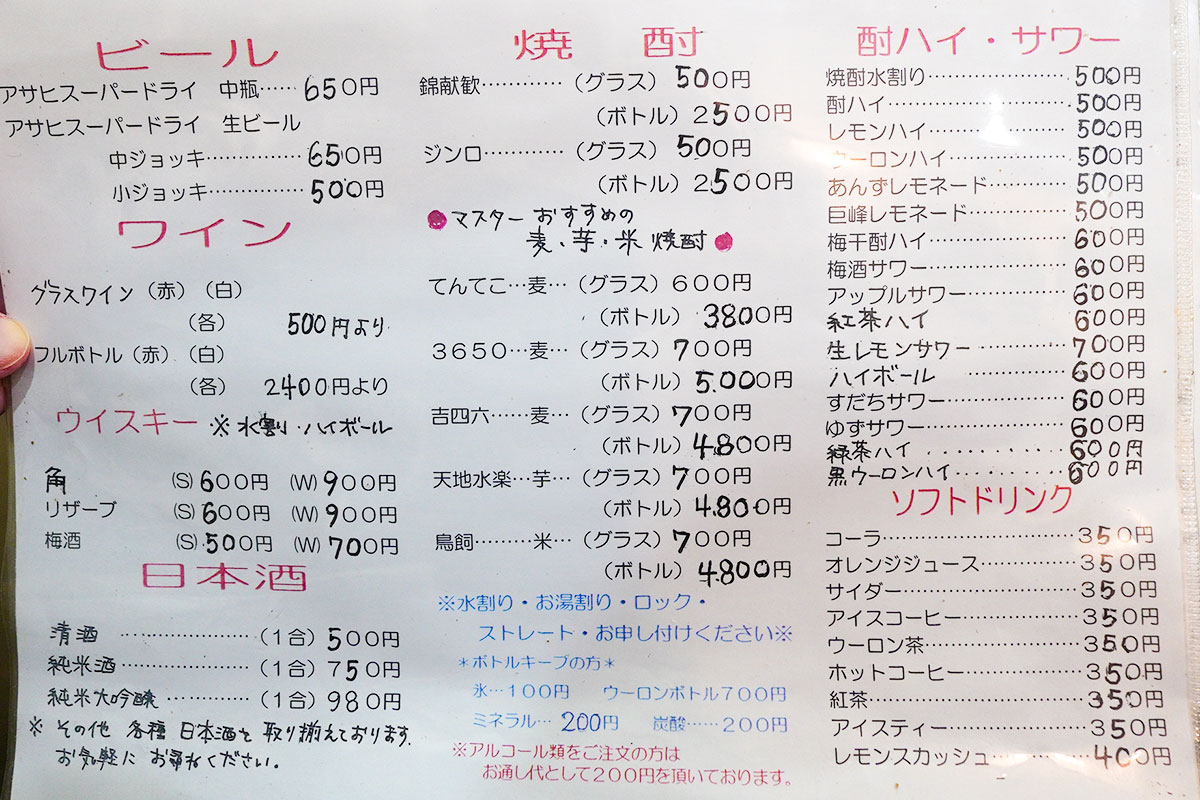 ビール
アサヒスーパードライ 中瓶……650円
アサヒスーパードライ 生ビール
中ジョッキ……………650円
小ジョッキ……………500円
ワイン
グラスワイン（赤）（白）
（各） 500円より
フルボトル（赤）（白）
（各） 2400円より
ウイスキー ※水割・ハイボール
角 (S)600円 (W)900円
リザーブ (S)600円 (W)900円
梅酒 (S)500円 (W)700円
日本酒
清酒 …………………（1合）500円
純米酒…………………（1合）750円
純米大吟醸……………（1合）980円
※その他 各種 日本酒を 取り揃えております。
お気軽に お尋ねください。
焼 酎
錦献歓…………（グラス）500円
（ボトル）2500円
ジンロ…………（グラス）500円
（ボトル）2500円
●マスターおすすめの
麦、芋・米 焼酎●
てんてこ…麦…（グラス）600円
（ボトル）3800円
3650…麦…（グラス）700円
（ボトル）5.000円
吉四六……麦…（グラス）700円
（ボトル）4.800円
天地水楽…芋…（グラス）700円
（ボトル）4.800円
鳥飼………米…（グラス）700円
（ボトル）4.800円
※水割り・お湯割り・ロック・
ストレート・お申し付けください※
＊ボトルキープの方＊
氷…100円 ウーロンボトル700円
ミネラル…200円 炭酸……200円
※アルコール類をご注文の方は
お通し代として200円を頂いております。
酎ハイ・サワー
焼酎水割り…………………500円
酎ハイ………………………500円
レモンハイ…………………500円
ウーロンハイ………………500円
あんずレモネード…………500円
巨峰レモネード……………500円
梅干酎ハイ…………………600円
梅酒サワー…………………600円
アップルサワー……………600円
紅茶ハイ 600円
生レモンサワー……………700円
ハイボール 600円
すだちサワー………………600円
ゆずサワー…………………600円
緑茶ハイ..........600円
黒ウーロンハイ..........600円
ソフトドリンク
コーラ………………………350円
オレンジジュース…………350円
サイダー……………………350円
アイスコーヒー……………350円
ウーロン茶…………………350円
ホットコーヒー……………350円
紅茶…………………………350円
アイスティー………………350円
レモンスカッシュ…………400円